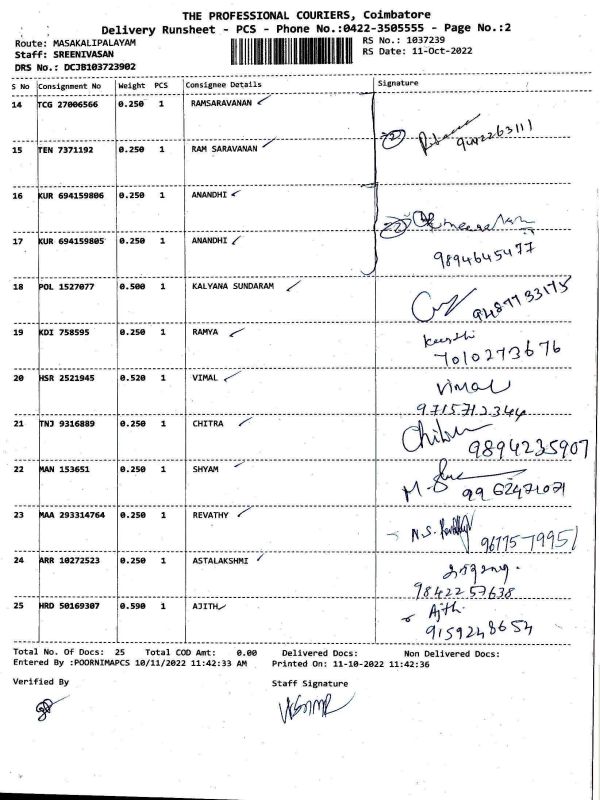 THE PROFESSIONAL COURIERS, Coimbatore
Delivery Runsheet - PCS - Phone No.:0422-3505555 - Page No.:2
Route: MASAKALIPALAYAM
RS No.: 1037239
Staff: SREENIVASAN
RS Date: 11-Oct-2022
DRS No.: DCJB103723902
S No Consignment No Weight PCS Consignee Details Signature
14 TCG 27006566 0.250 1 RAMSARAVANAN
15 TEN 7371192 0.250 1 RAM SARAVANAN
16 KUR 694159806 0.250 1 ANANDHI
17 KUR 694159805 0.250 1 ANANDHI
9894645477
18 POL 1527077 0.500 1 KALYANA SUNDARAM
9487733175
19 KDI 758595 0.250 1 RAMYA
7010273676
20 HSR 2521945 0.520 1 VIMAL Vimal
9715712344
21 TNJ 9316889 0.250 1 CHITRA
9894235907
22 MAN 153651 0.250 1 SHYAM
9962471071
23 MAA 293314764 0.250 1 REVATHY N.S. Revathy
9677579951
24 ARR 10272523 0.250 1 ASTALAKSHMI
9842257638
25 HRD 50169307 0.590 1 AJITH Ajith
9159248654
Total No. Of Docs: 25 Total COD Amt: 0.00 Delivered Docs: Non Delivered Docs:
Entered By :POORNIMAPCS 10/11/2022 11:42:33 AM Printed On: 11-10-2022 11:42:36
Verified By Staff Signature